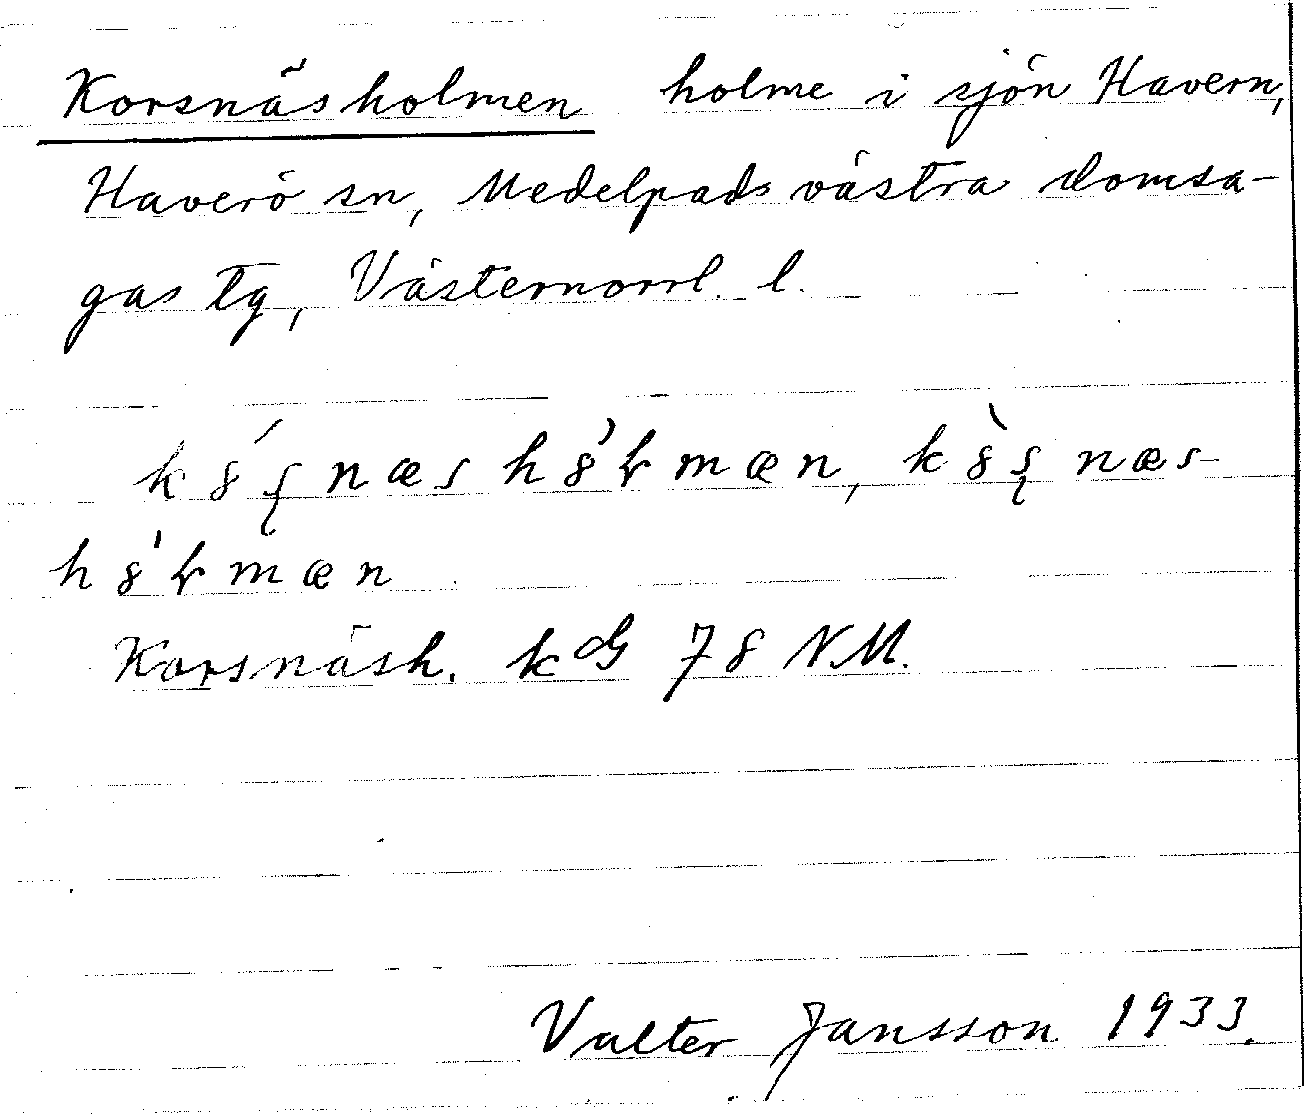 Korsnäsholmen holme i sjön Havern,
Haverö sn, Medelpads västra domsa-
gas tg, Västernorrl. l.
Korsnäsh. k
78 N.M.
Valter Jansson 1933.